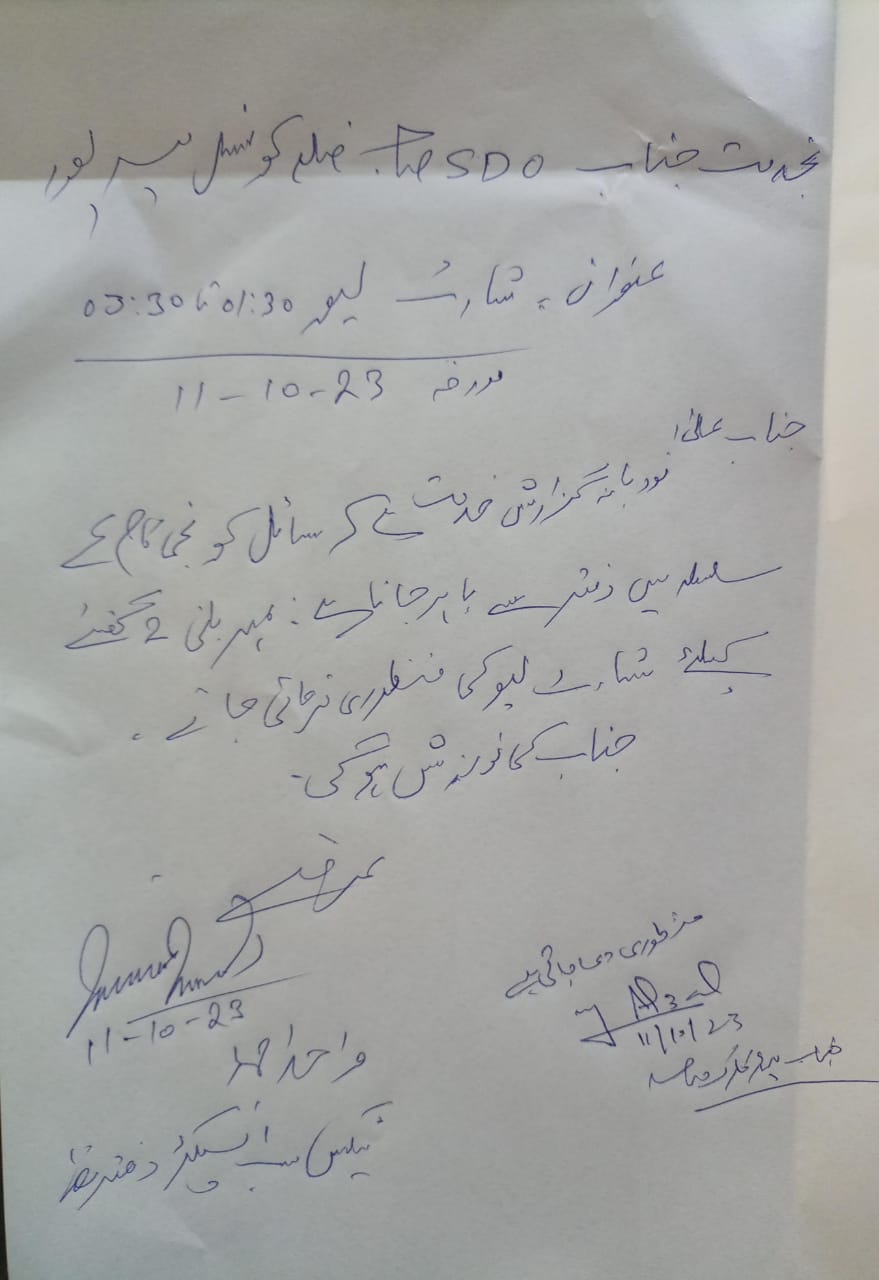 بخدمت جناب SDO صاحب ضلع کونسل میر پور
عنوان :۔ شارٹ لیو 01:30 تا 03:30
مورخہ 11-10-23
جناب عالی!
مودبانہ گزارش خدمت ہے کہ سائل کو نجی کام کے
سلسلہ میں دفتر سے باہر جانا ہے۔ مہربانی 2 گھنٹے
کیلئے شارٹ لیو کی منظوری فرمائی جائے ۔
جناب کی نوازش ہوگی۔
عرضے
11-10-23
واحد احمد
ٹیکس سب انسپکٹر دفتر ھذا
منظوری دی جاتی ہے
11/10/23
جناب ہیڈ کلرک صاحب